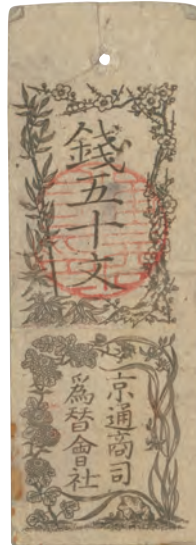 錢五十文
京通商司
爲替會社